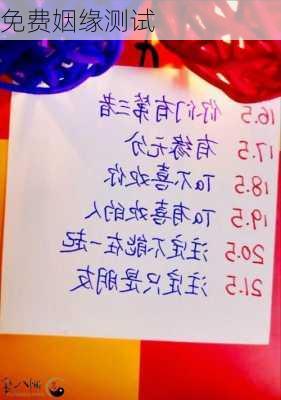 免费姻缘测试
16.5 你们有第三者
17.5 有缘无分
18.5 Ta不喜欢你
19.5 Ta有喜欢的人
20.5 注定不能在一起
21.5 注定只是朋友